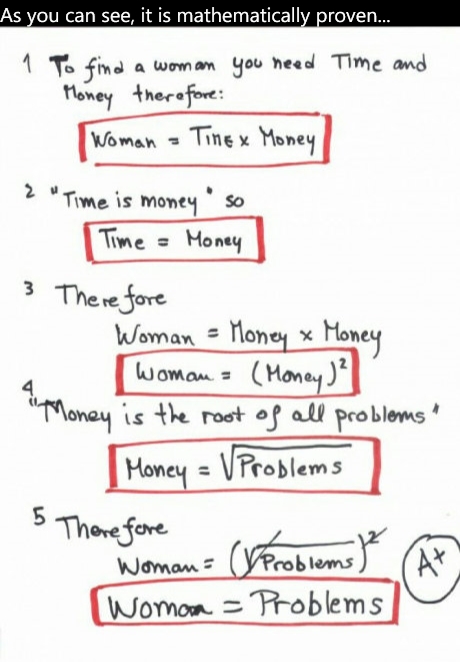 As you can see, it is mathematically proven...
1 To find a woman you need Time and
Money therefore:
Woman = Time x Money
2 "Time is money" so
Time = Money
3 Therefore
Woman = Money x Money
Woman = (Money)²
4
"Money is the root of all problems"
Money = √Problems
5 Therefore
Woman = (√Problems)²
A+
Woman = Problems